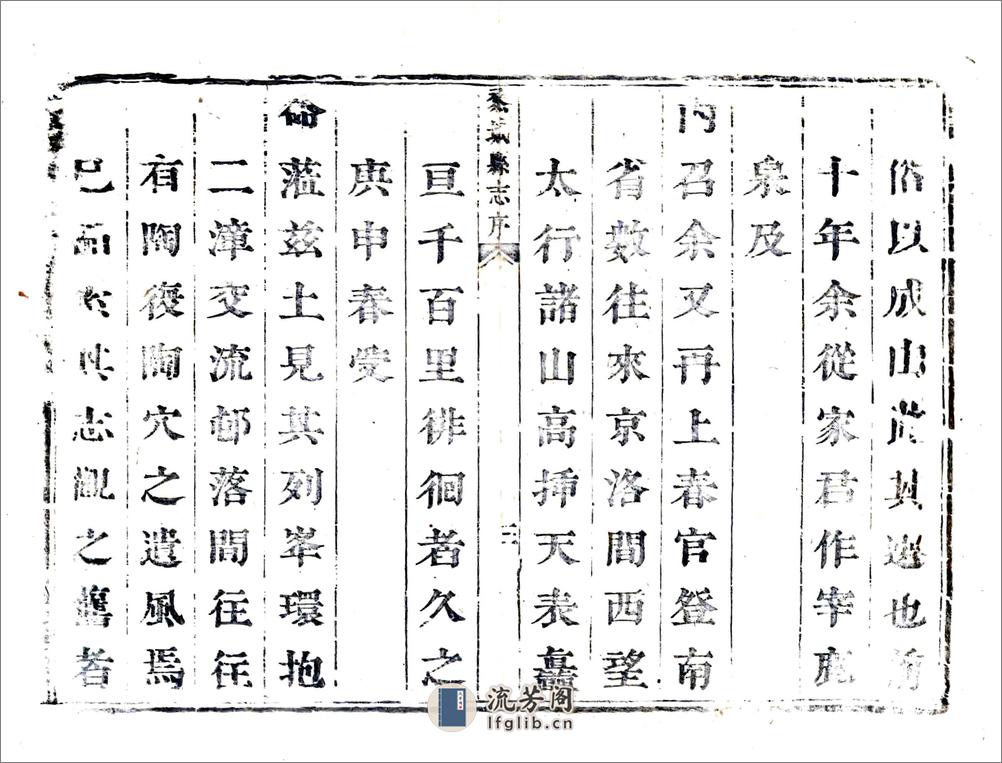 俗以成山其選也前
十年余從家君作宰鹿
泉及
內召余又再上春官登南
省數往來京洛間西望
太行諸山高揷天表矗
黎城縣志序
三
亘千百里徘徊者久之
庚申春受
命蒞茲土見其列峯環抱
二漳交流邨落間往往
有陶復陶穴之遺風焉
已而索其志觀之舊者
流芳阁
lfglib.cn